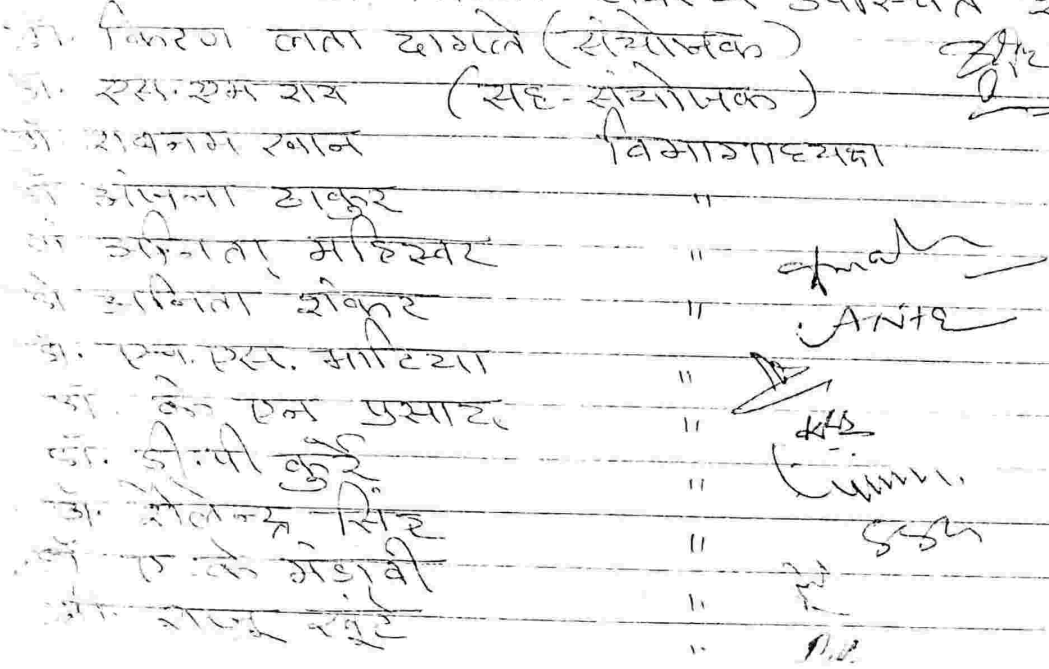 उपस्थित
डॉ. किरण लता दामले (संयोजक)
डॉ. एस.एम राय (सह-संयोजक)
डॉ शबनम खान विभागाध्यक्ष
डॉ अंजना ठाकुर "
डॉ अनिता महिस्वर "
डॉ अनिता शंकर "
डॉ. एन.एस. भाटिया "
डॉ. के एन प्रसाद "
डॉ. डी.पी कुर्रे "
डॉ. शैलेन्द्र सिंह "
डॉ ए.के मंडावी "
डॉ. राजू खूंटे "